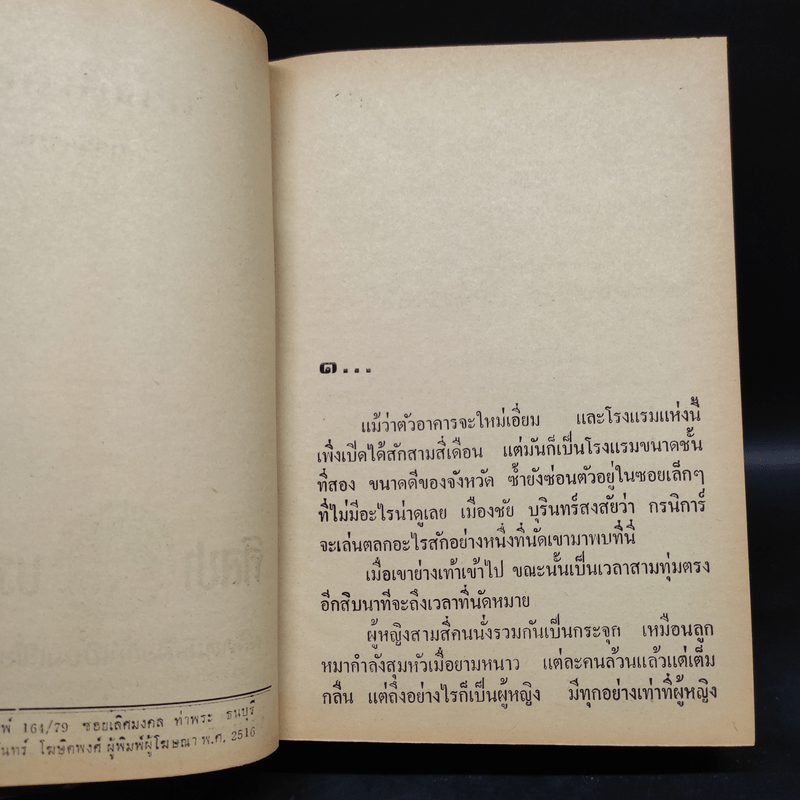 164/79 ซอยเลิศมงคล ท่าพระ ธนบุรี
โฆษิตพงศ์ ผู้พิมพ์ผู้โฆษณา พ.ศ. 2516
๑...
แม้ว่าตัวอาคารจะใหม่เอี่ยม และโรงแรมแห่งนี้
เพิ่งเปิดได้สักสามสี่เดือน แต่มันก็เป็นโรงแรมขนาดชั้น
ที่สอง ขนาดดีของจังหวัด ซ้ำยังซ่อนตัวอยู่ในซอยเล็กๆ
ที่ไม่มีอะไรน่าดูเลย เมืองชัย บุรินทร์สงสัยว่า กรนิการ์
จะเล่นตลกอะไรสักอย่างหนึ่งที่นัดเขามาพบที่นี่
เมื่อเขาย่างเท้าเข้าไป ขณะนั้นเป็นเวลาสามทุ่มตรง
อีกสิบนาทีจะถึงเวลาที่นัดหมาย
ผู้หญิงสามสี่คนนั่งรวมกันเป็นกระจุก เหมือนลูก
หมากำลังสุมหัวเมื่อยามหนาว แต่ละคนล้วนแล้วแต่เต็ม
กลืน แต่ถึงอย่างไรก็เป็นผู้หญิง มีทุกอย่างเท่าที่ผู้หญิง